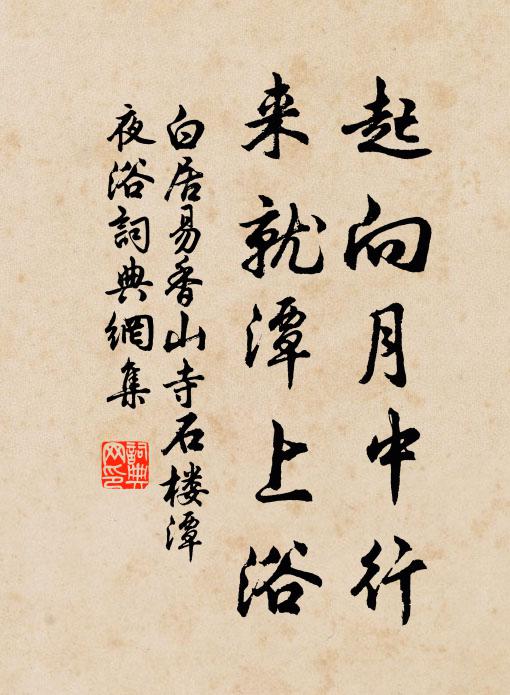 起向月中行
来就潭上浴
白居易香山寺石楼潭
夜浴詞典網集
詞典
网印